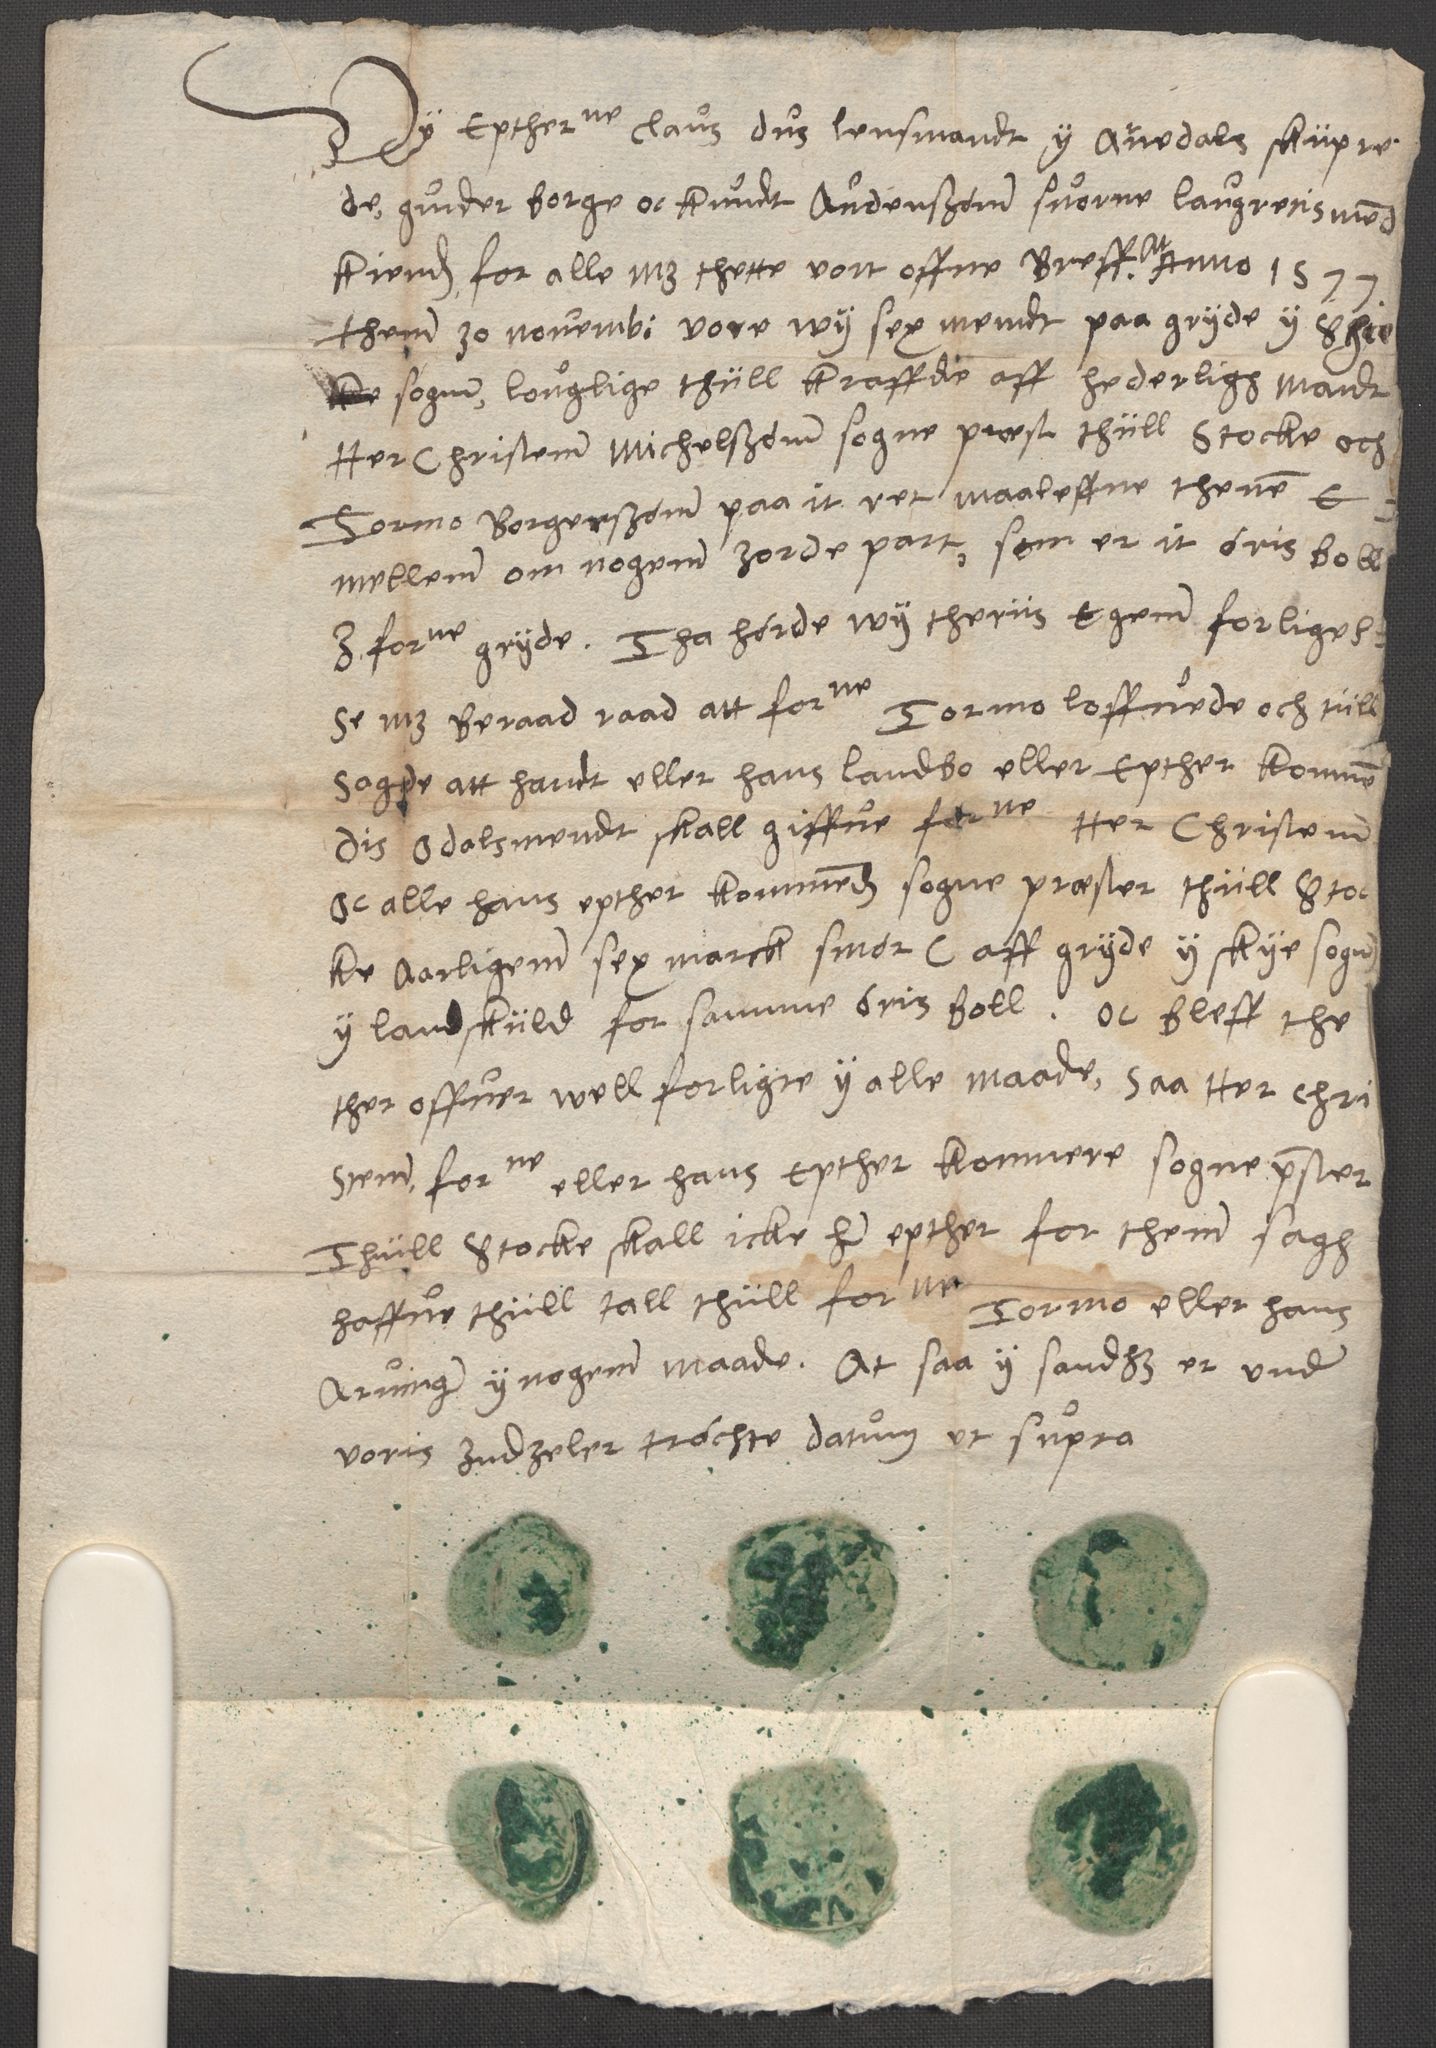 Wÿ Epther^ne Claus dus lensmandt ÿ Aruedals sküpre-
de, gunder borge oc knudt Audenszønn suorne laugretis mēd
kiend for alle mz thette vort offne Breff. At Anno 1577
thenn 30 novembi vore wÿ sex mendt paa grÿde ÿ Skie
sogn, louglige thüll kraffde aff hederligh mandt
Her Christenn Michelszønn sogne prest thüll Stocke och
Tormo Borgerszønn paa it ret maalleffne thenē E
mellenn om nogenn Jorde part, som er it øris boll
J for^ne grÿde. Tha hørde wÿ theris Egenn forligel
se mz Beraad raad att for^ne Tormo loffuede och tüll
sagde att handt eller hans landbo eller Epther kommē
dis Odalsmendt skall giffue for^ne Her Christenn
Oc alle hans epther kommend sogne prester thüll Stoc
ke Aarligenn sex marck smør aff grÿde ÿ skÿe sogn
ÿ landskÿld for samme øris boll. Oc bleff the
ther offuer well forligte ÿ alle maade, saa Her Chri
stenn, for^ne eller hans Epther kommere sogne pster
Thüll Stocke skall icke her epther for thenn sagh
haffue thüll tall thüll for^ne Tormo eller hans
Aruinger ÿ nogenn maade. At saa ÿ sandhz er under
voris Indzeler trøchte datum ut supra